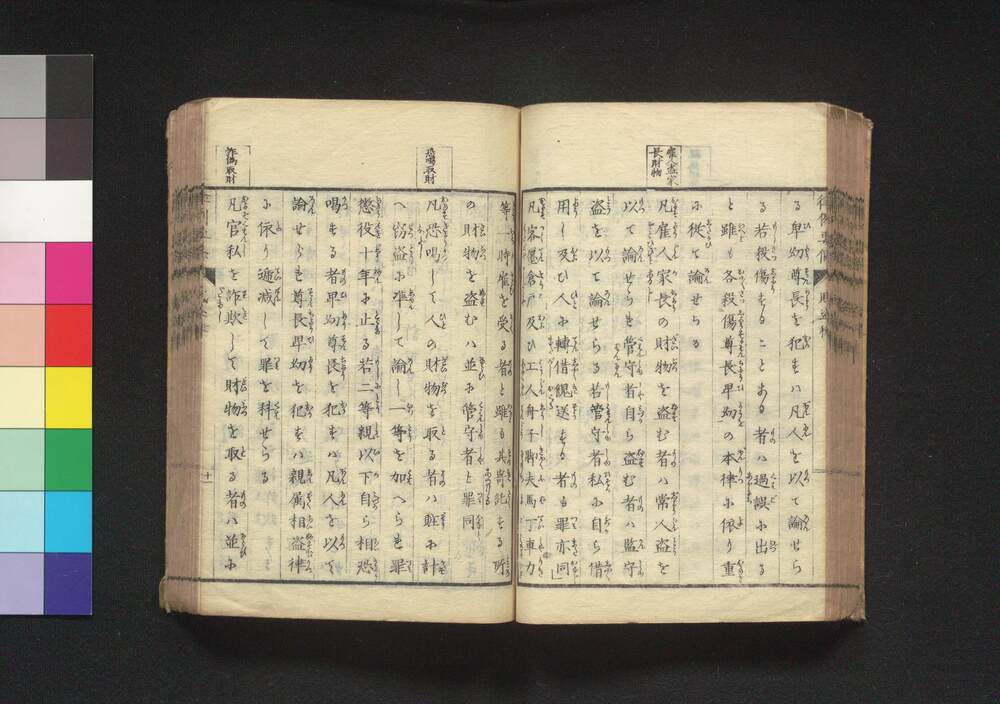 る卑幼尊長を犯すハ凡人を以て論せら
る若殺傷することある者ハ過誤に出る
と雖も各殺傷尊長卑幼の本律に依り重
に從て論せらる
雇人盗家長財物
凡雇人家長の財物を盗む者ハ常人盗を
以て論せらる管守者自ら盗む者ハ監守
盗を以て論せらる若管守者私に自ら借
用し及ひ人に轉借貺送する者も罪亦同
凡客店倉戸及ひ工人舟子脚夫馬丁車力
等一時雇を受る者と雖も其寄託する所
の財物を盗むハ並に管守者と罪同
恐喝取財
凡恐喝して人の財物を取る者ハ賍に計
へ窃盗に准して論し一等を加へらる罪
懲役十年に止る若二等親以下自ら相恐
喝する者卑幼尊長を犯すハ凡人を以て
論せらる尊長卑幼を犯すハ親属相盗律
に依り逓減して罪を科せらる
詐偽取財
凡官私を詐欺して財物を取る者ハ並に
十一